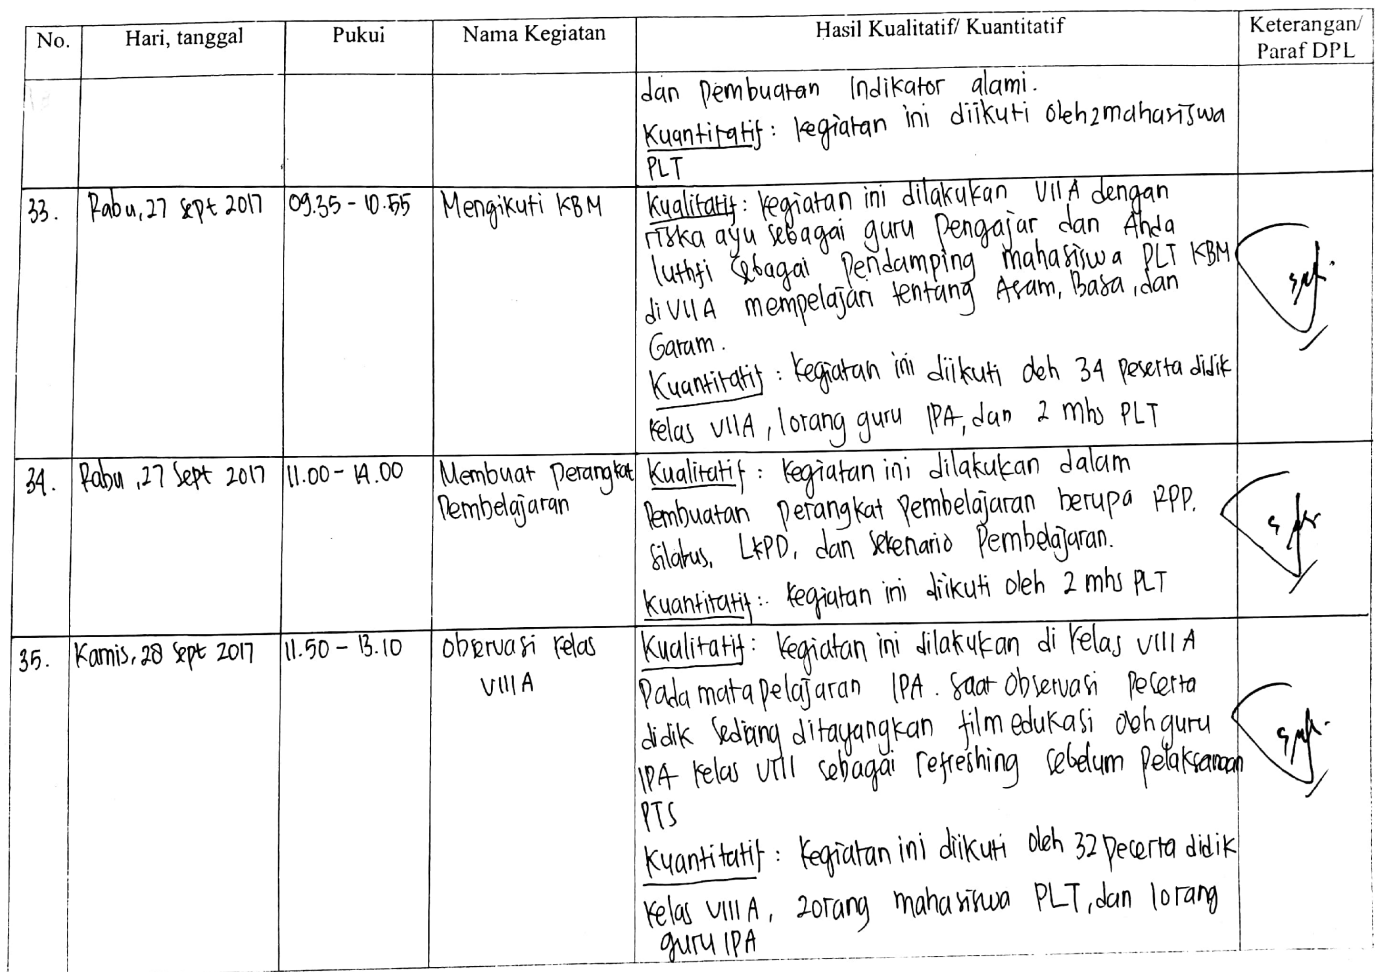 No. Hari, tanggal Pukul Nama Kegiatan Hasil Kualitatif/ Kuantitatif Keterangan/ Paraf DPL
dan Pembuatan Indikator alami.
Kuantitatif : kegiatan ini diikuti oleh 2 mahasiswa
PLT
33. Rabu, 27 Sept 2017 09.35 - 10.55 Mengikuti KBM
Kualitatif : kegiatan ini dilakukan VII A dengan
riska ayu sebagai guru Pengajar dan Anda
luthfi sebagai Pendamping mahasiswa PLT KBM
di VII A mempelajari tentang Asam, Basa, dan
Garam.
Kuantitatif : kegiatan ini diikuti oleh 34 Peserta didik
kelas VIIA, 1 orang guru IPA, dan 2 mhs PLT
34. Rabu, 27 Sept 2017 11.00 - 14.00 Membuat Perangkat
Pembelajaran
Kualitatif : kegiatan ini dilakukan dalam
Pembuatan Perangkat Pembelajaran berupa RPP,
Silabus, LKPD, dan Sekenario Pembelajaran.
Kuantitatif : kegiatan ini diikuti oleh 2 mhs PLT
35. Kamis, 28 Sept 2017 11.50 - 13.10 Observasi kelas
VIII A
Kualitatif : kegiatan ini dilakukan di kelas VIII A
Pada mata pelajaran IPA. Saat Observasi Peserta
didik sediang ditayangkan film edukasi oleh guru
IPA kelas VIII sebagai refreshing sebelum Pelaksanaan
PTS
Kuantitatif : kegiatan ini diikuti oleh 32 Peserta didik
kelas VIII A, 2 orang mahasiswa PLT, dan 1 orang
guru IPA